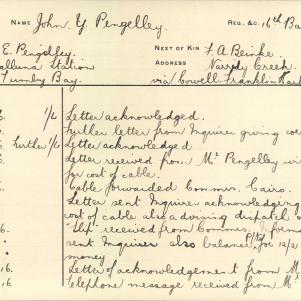 NAME John Y. Pengelley. REG. &C. 16th Ba
E. Pengelley. NEXT OF KIN F. A. Beinke.
Station ADDRESS Narridy Creek.
Tumby Bay. via Cowell. Franklin Har
1/6 Letter acknowledged.
Further letter from Inquirer giving
Further 1/6 Letter acknowledged
Letter received from Mr Pengelley
for cost of cable.
Cable forwarded Commrs. Cairo.
Letter sent Inquirer acknowledging
cost of cable also advising dispatch o
received from Commrs. Inform
sent Inquirer also balance, for 12/2
money
16. Letter of acknowledgement from M
16. Telephone message received from M